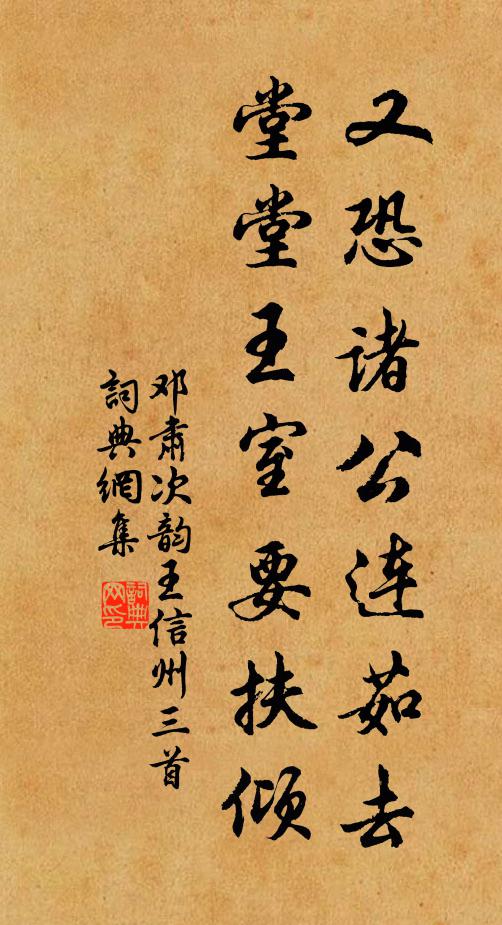 又恐诸公连茹去
堂堂王室要扶倾
邓肃次韵王信州三首
詞典網集
詞典网印